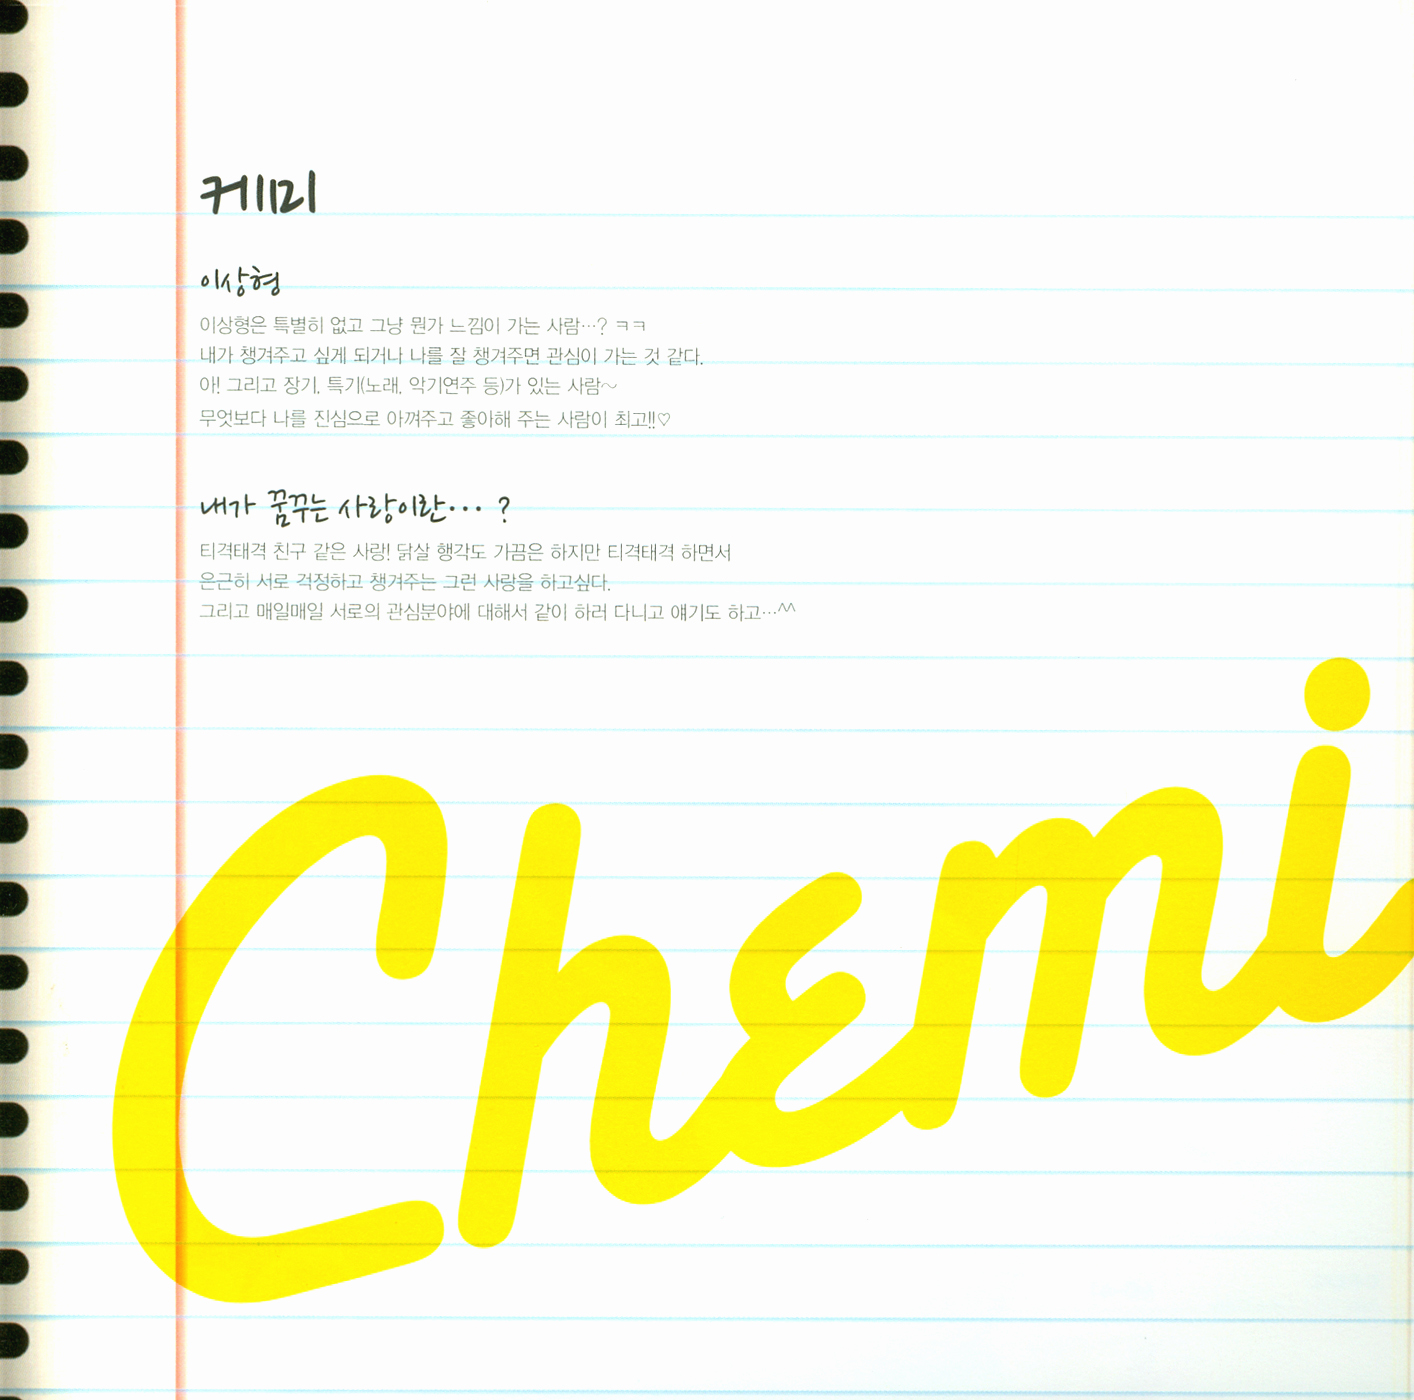 케미
이상형
이상형은 특별히 없고 그냥 뭔가 느낌이 가는 사람…? ㅋㅋ
내가 챙겨주고 싶게 되거나 나를 잘 챙겨주면 관심이 가는 것 같다.
아! 그리고 장기, 특기(노래, 악기연주 등)가 있는 사람~
무엇보다 나를 진심으로 아껴주고 좋아해 주는 사람이 최고!!♡
내가 꿈꾸는 사랑이란… ?
티격태격 친구 같은 사랑! 닭살 행각도 가끔은 하지만 티격태격 하면서
은근히 서로 걱정하고 챙겨주는 그런 사랑을 하고싶다.
그리고 매일매일 서로의 관심분야에 대해서 같이 하러 다니고 얘기도 하고…^^
Chemi